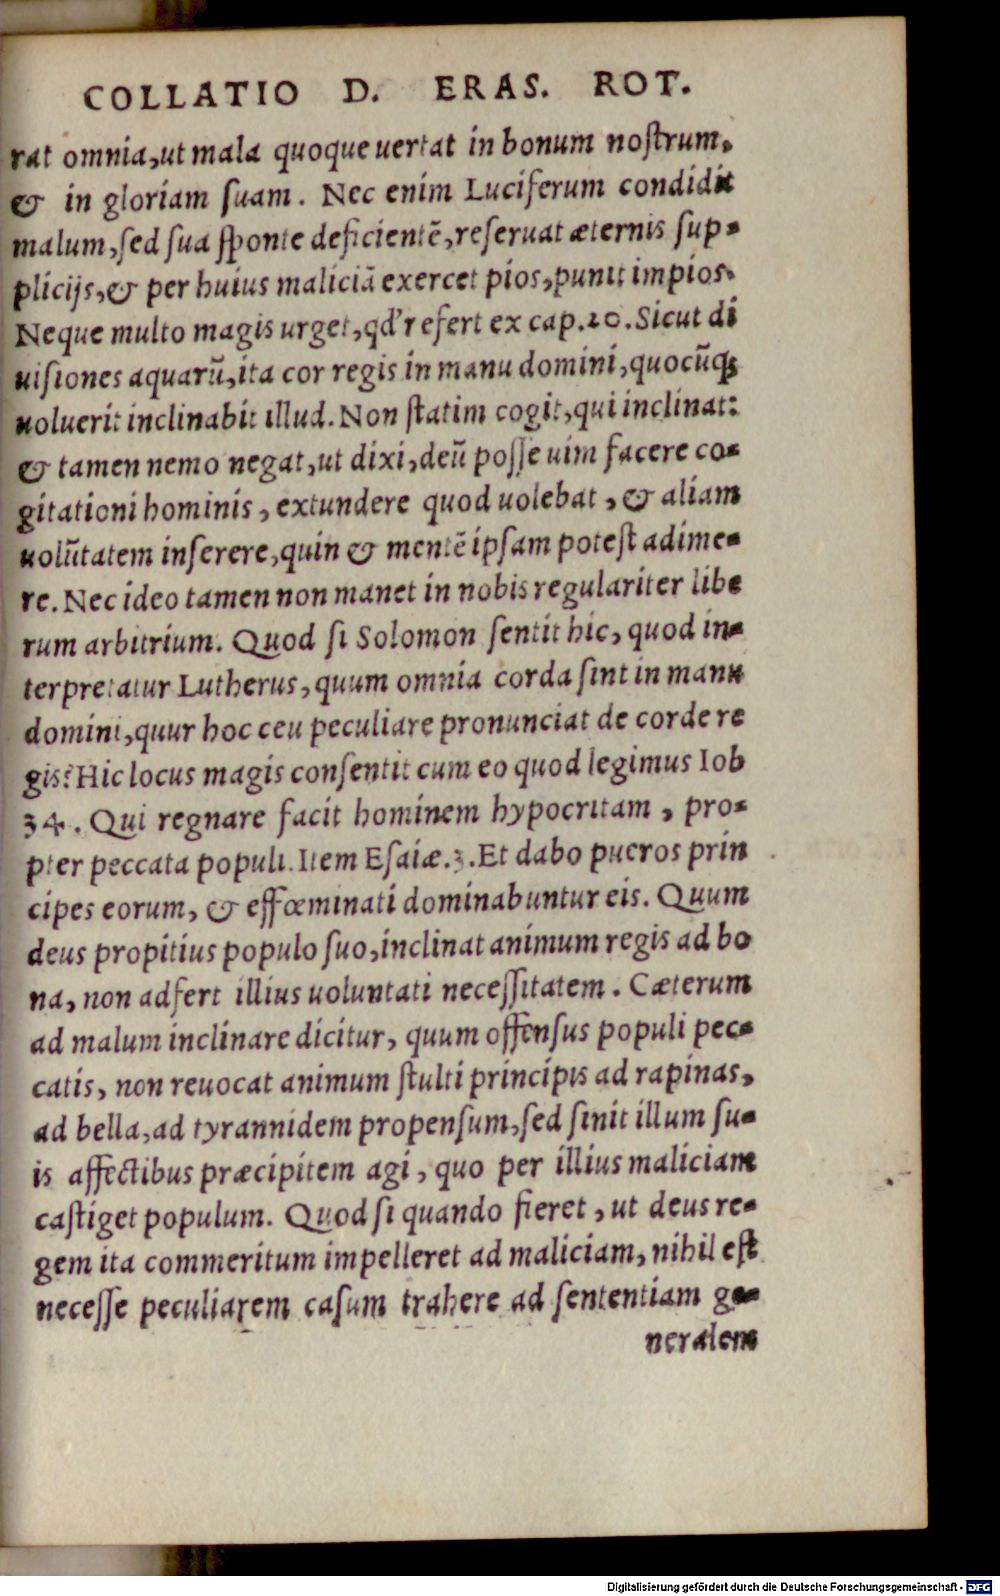 COLLATIO D. ERAS. ROT.
rat omnia, ut mala quoque uertat in bonum nostrum,
& in gloriam suam. Nec enim Luciferum condidit
malum, sed sua sponte deficientē, reseruat æternis sup-
plicijs, & per huius maliciā exercet pios, punit impios.
Neque multo magis urget, qđ refert ex cap. 20. Sicut di
uisiones aquarū, ita cor regis in manu domini, quocūq;
uoluerit inclinabit illud. Non statim cogit, qui inclinat:
& tamen nemo negat, ut dixi, deū posse uim facere co-
gitationi hominis, extundere quod uolebat, & aliam
uolūtatem inserere, quin & mentē ipsam potest adime-
re. Nec ideo tamen non manet in nobis regulariter libe
rum arbitrium. Quod si Solomon sentit hic, quod in-
terpretatur Lutherus, quum omnia corda sint in manu
domini, quur hoc ceu peculiare pronunciat de corde re
gis? Hic locus magis consentit cum eo quod legimus Iob
34. Qui regnare facit hominem hypocritam, pro-
pter peccata populi. Item Esaiæ. 3. Et dabo pueros prin
cipes eorum, & effœminati dominabuntur eis. Quum
deus propitius populo suo, inclinat animum regis ad bo
na, non adfert illius uoluntati necessitatem. Cæterum
ad malum inclinare dicitur, quum offensus populi pec-
catis, non reuocat animum stulti principis ad rapinas,
ad bella, ad tyrannidem propensum, sed sinit illum su-
is affectibus præcipitem agi, quo per illius maliciam
castiget populum. Quod si quando fieret, ut deus re-
gem ita commeritum impelleret ad maliciam, nihil est
necesse peculiarem casum trahere ad sententiam ge-
neralem
Digitalisierung gefördert durch die Deutsche Forschungsgemeinschaft - DFG